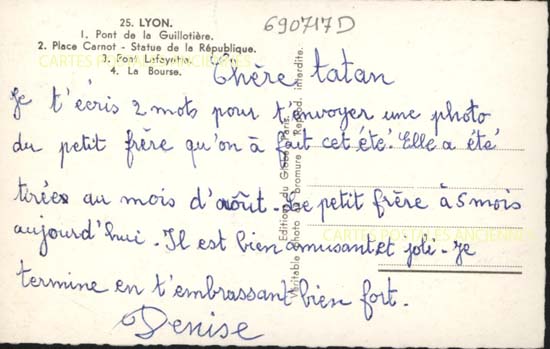 25. LYON.
1. Pont de la Guillotière.
2. Place Carnot - Statue de la République.
3. Pont Lafayette.
4. La Bourse.
690717D
CARTES POSTALES ANCIENNES
Chère tatan
Je t'écris 2 mots pour t'envoyer une photo
du petit frère qu'on à fait cet été. Elle a été
tirées au mois d'août. Le petit frère à 5 mois
aujourd'hui. Il est bien amusant et joli. Je
termine en t'embrassant bien fort.
Denise
Edition du Griffon, Paris.
Véritable photo au bromure - Reprod. interdite.
CARTES POSTALES ANCIENNES